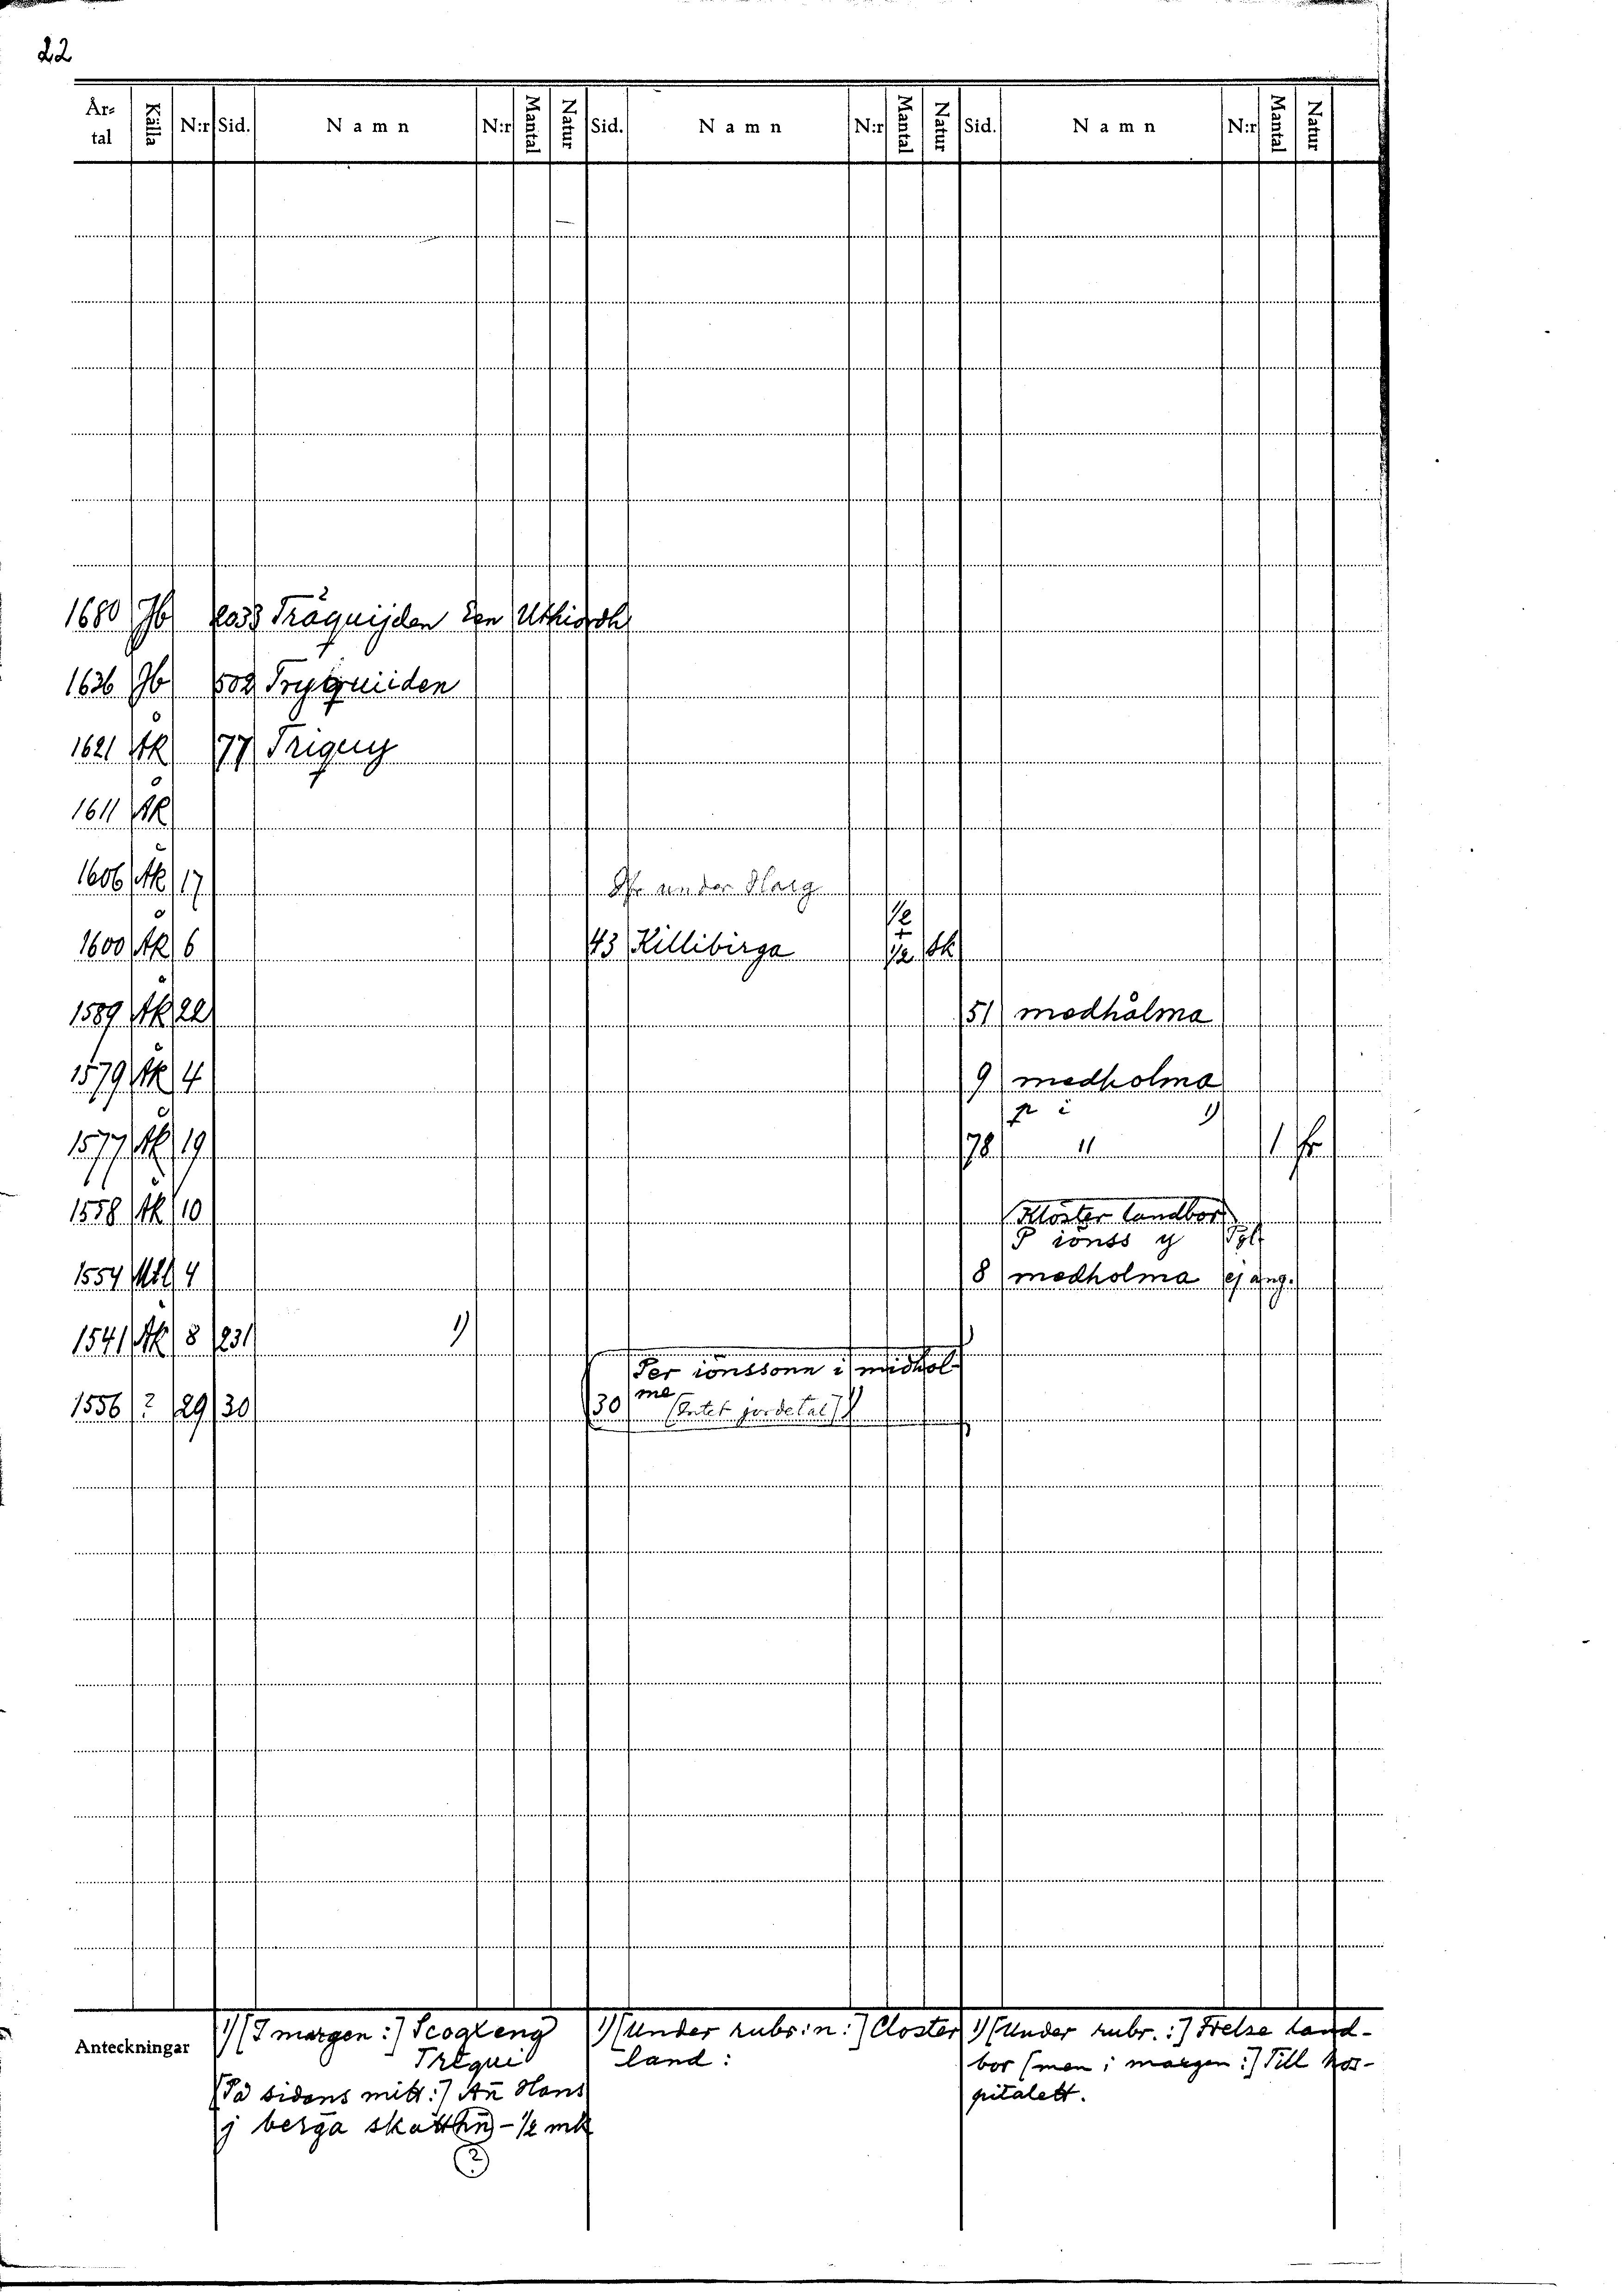 22
År-tal Källa N:r Sid. Namn N:r Mantal Natur Sid. Namn N:r Mantal Natur Sid. Namn N:r Mantal Natur
1680 Jb Träquijden
1636 Jb 502
1621 Åk 77 Triguy
1611 Åk
1606 Åk 17 under Harg
1/2
+
1600 Åk 6 43 Killibirga 1/2 sk
1589 Åk 22 51 modhålma
1579 Åk 4 9 medholma
p i 1)
1577 Åk 19 78 " 1 fr
1558 Åk 10 Kloster landbor
P iönss y
1554 4 8 medholma ej ang.
1541 Åk 8 231 1)
Per iönssonn i midhol
me
1556 ? 29 30 30 (Intet jordetal)
Anteckningar
1) (I margen:) Scogleng
Trequi
(På sidans mitt:) An Hans
j berga skatthn - 1/2 mk
(?)
1) (Under rubr:n:) Closter
land:
1) (Under rubr.:) Frelse Land-
bor (men i margen:) Till hos-
pitalett.